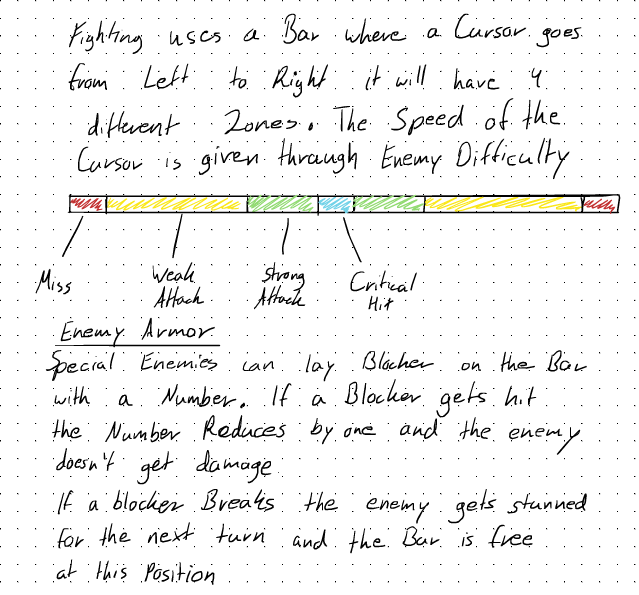 Fighting uses a Bar where a Cursor goes
from Left to Right it will have 4
different Zones. The Speed of the
Cursor is given through Enemy Difficulty
Miss
Weak
Attack
Strong
Attack
Critical
Hit
Enemy Armor
Special Enemies can lay Blocker on the Bar
with a Number. If a Blocker gets hit
the Number Reduces by one and the enemy
doesn't get damage
If a blocker Breaks the enemy gets stunned
for the next turn and the Bar is free
at this Position